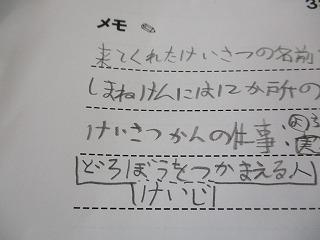 メモ
来てくれたけいさつの名前
しまねけんには12か所の
けいさつかんの仕事:
どろぼうをつかまえる人
けいじ